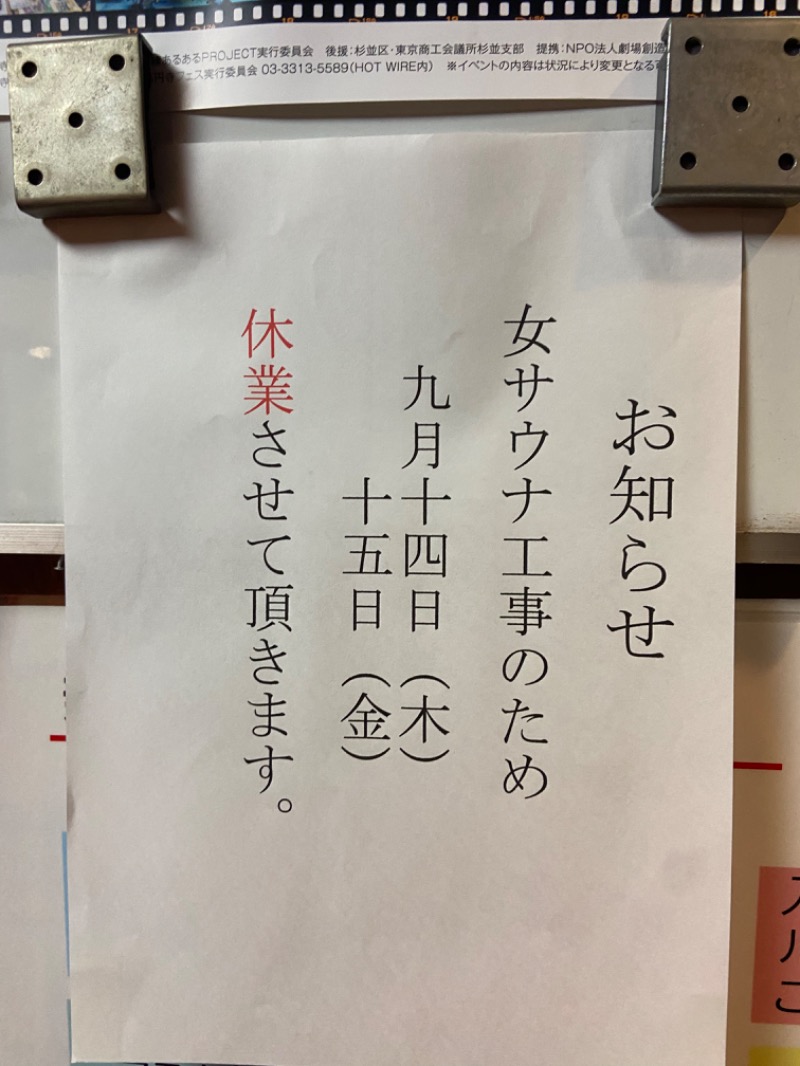 あるあるPROJECT実行委員会 後援:杉並区・東京商工会議所杉並支部 提携:NPO法人劇場創造
円寺フェス実行委員会 03-3313-5589(HOT WIRE内) ※イベントの内容は状況により変更となる
お知らせ
女サウナ工事のため
九月十四日(木)
十五日(金)
休業させて頂きます。